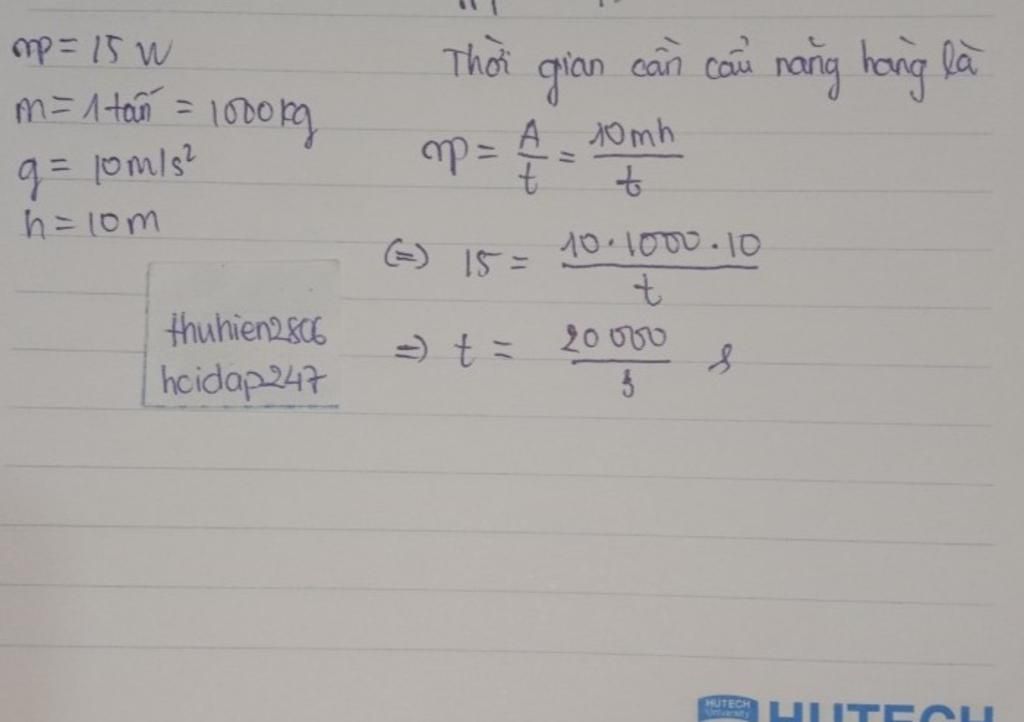 𝒫 = 15 W
m = 1 tấn = 1000 kg
g = 10 m/s²
h = 10 m
thuhien2806
hoidap247
Thời gian cần cẩu nâng hàng là
𝒫 = A/t = 10mh/t
(=) 15 = 10.1000.10/t
=) t = 20 000/3 s
HUTECH
University
HUTECH